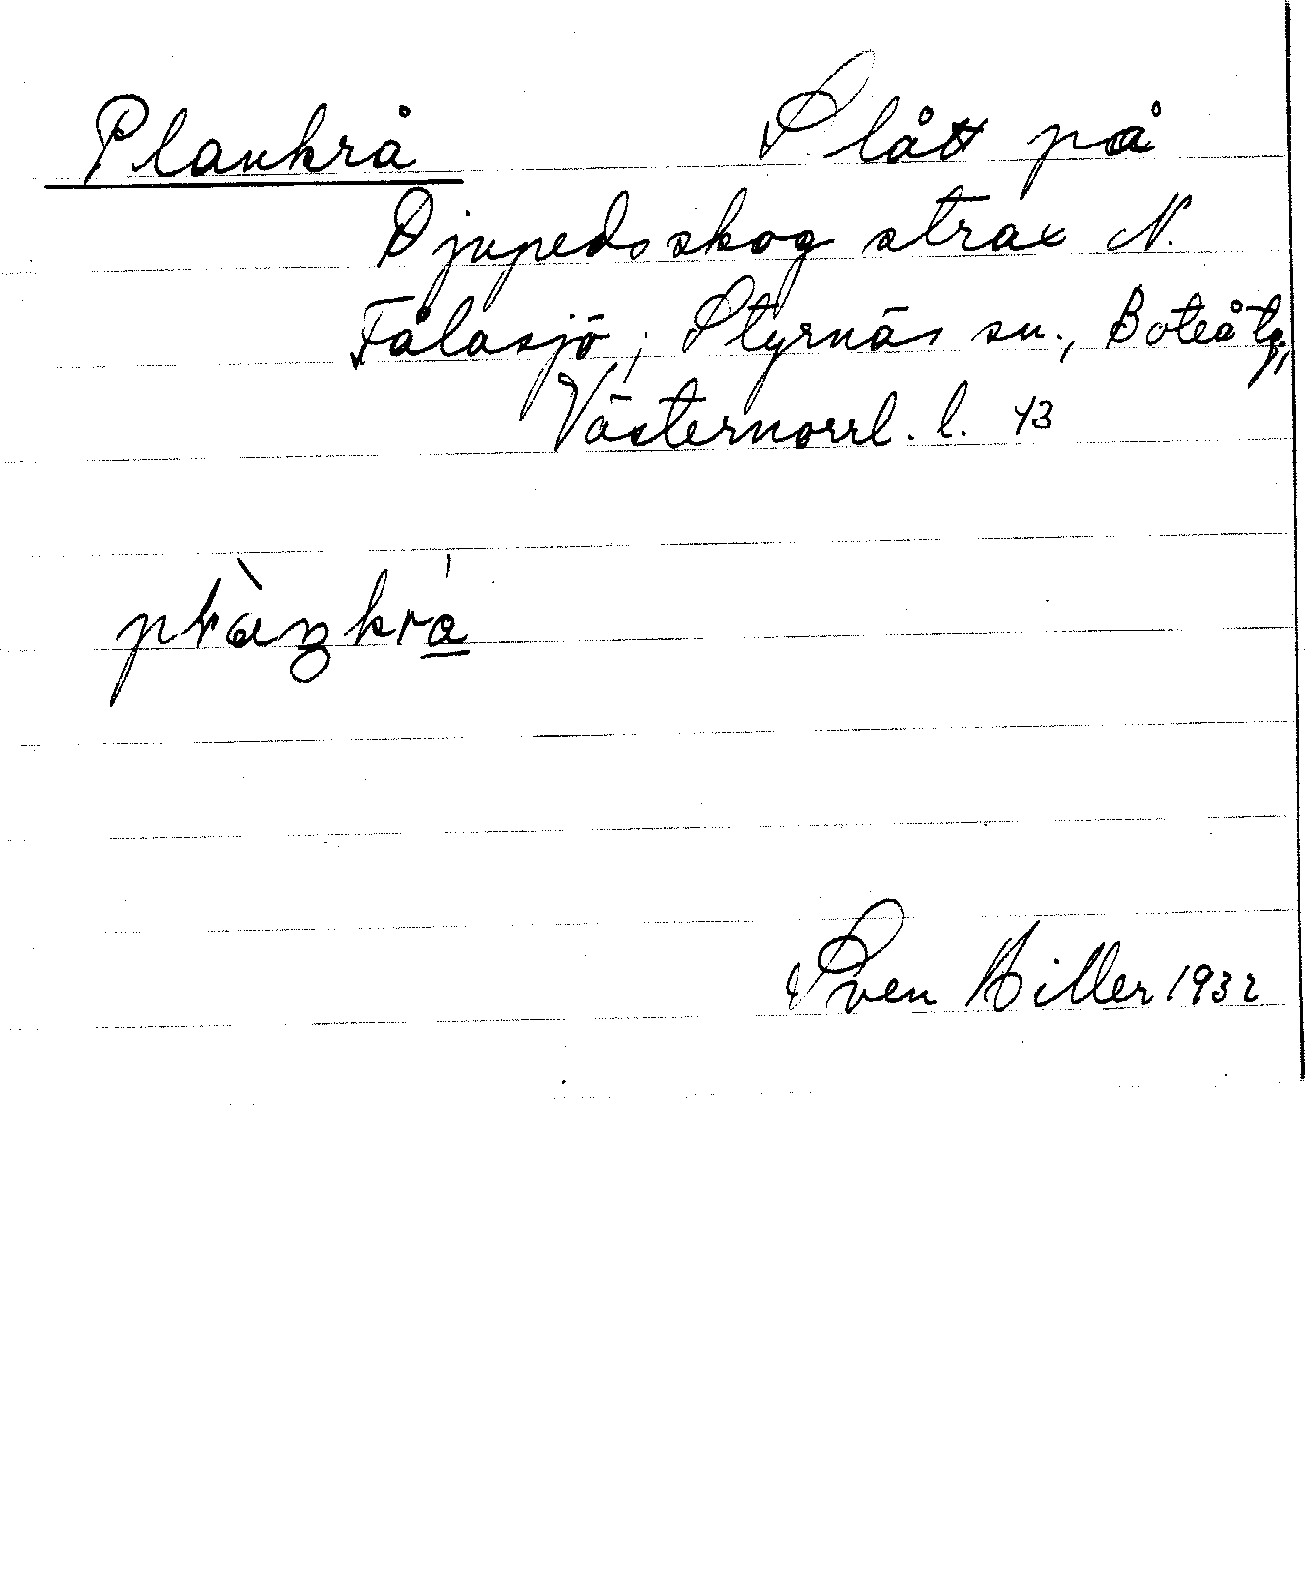 Plankrå Slått på
Djupedsskog strax N.
Fålasjö, Styrnäs sn., Boteå tg,
Västernorrl. l. 43
Sven Hiller 1932